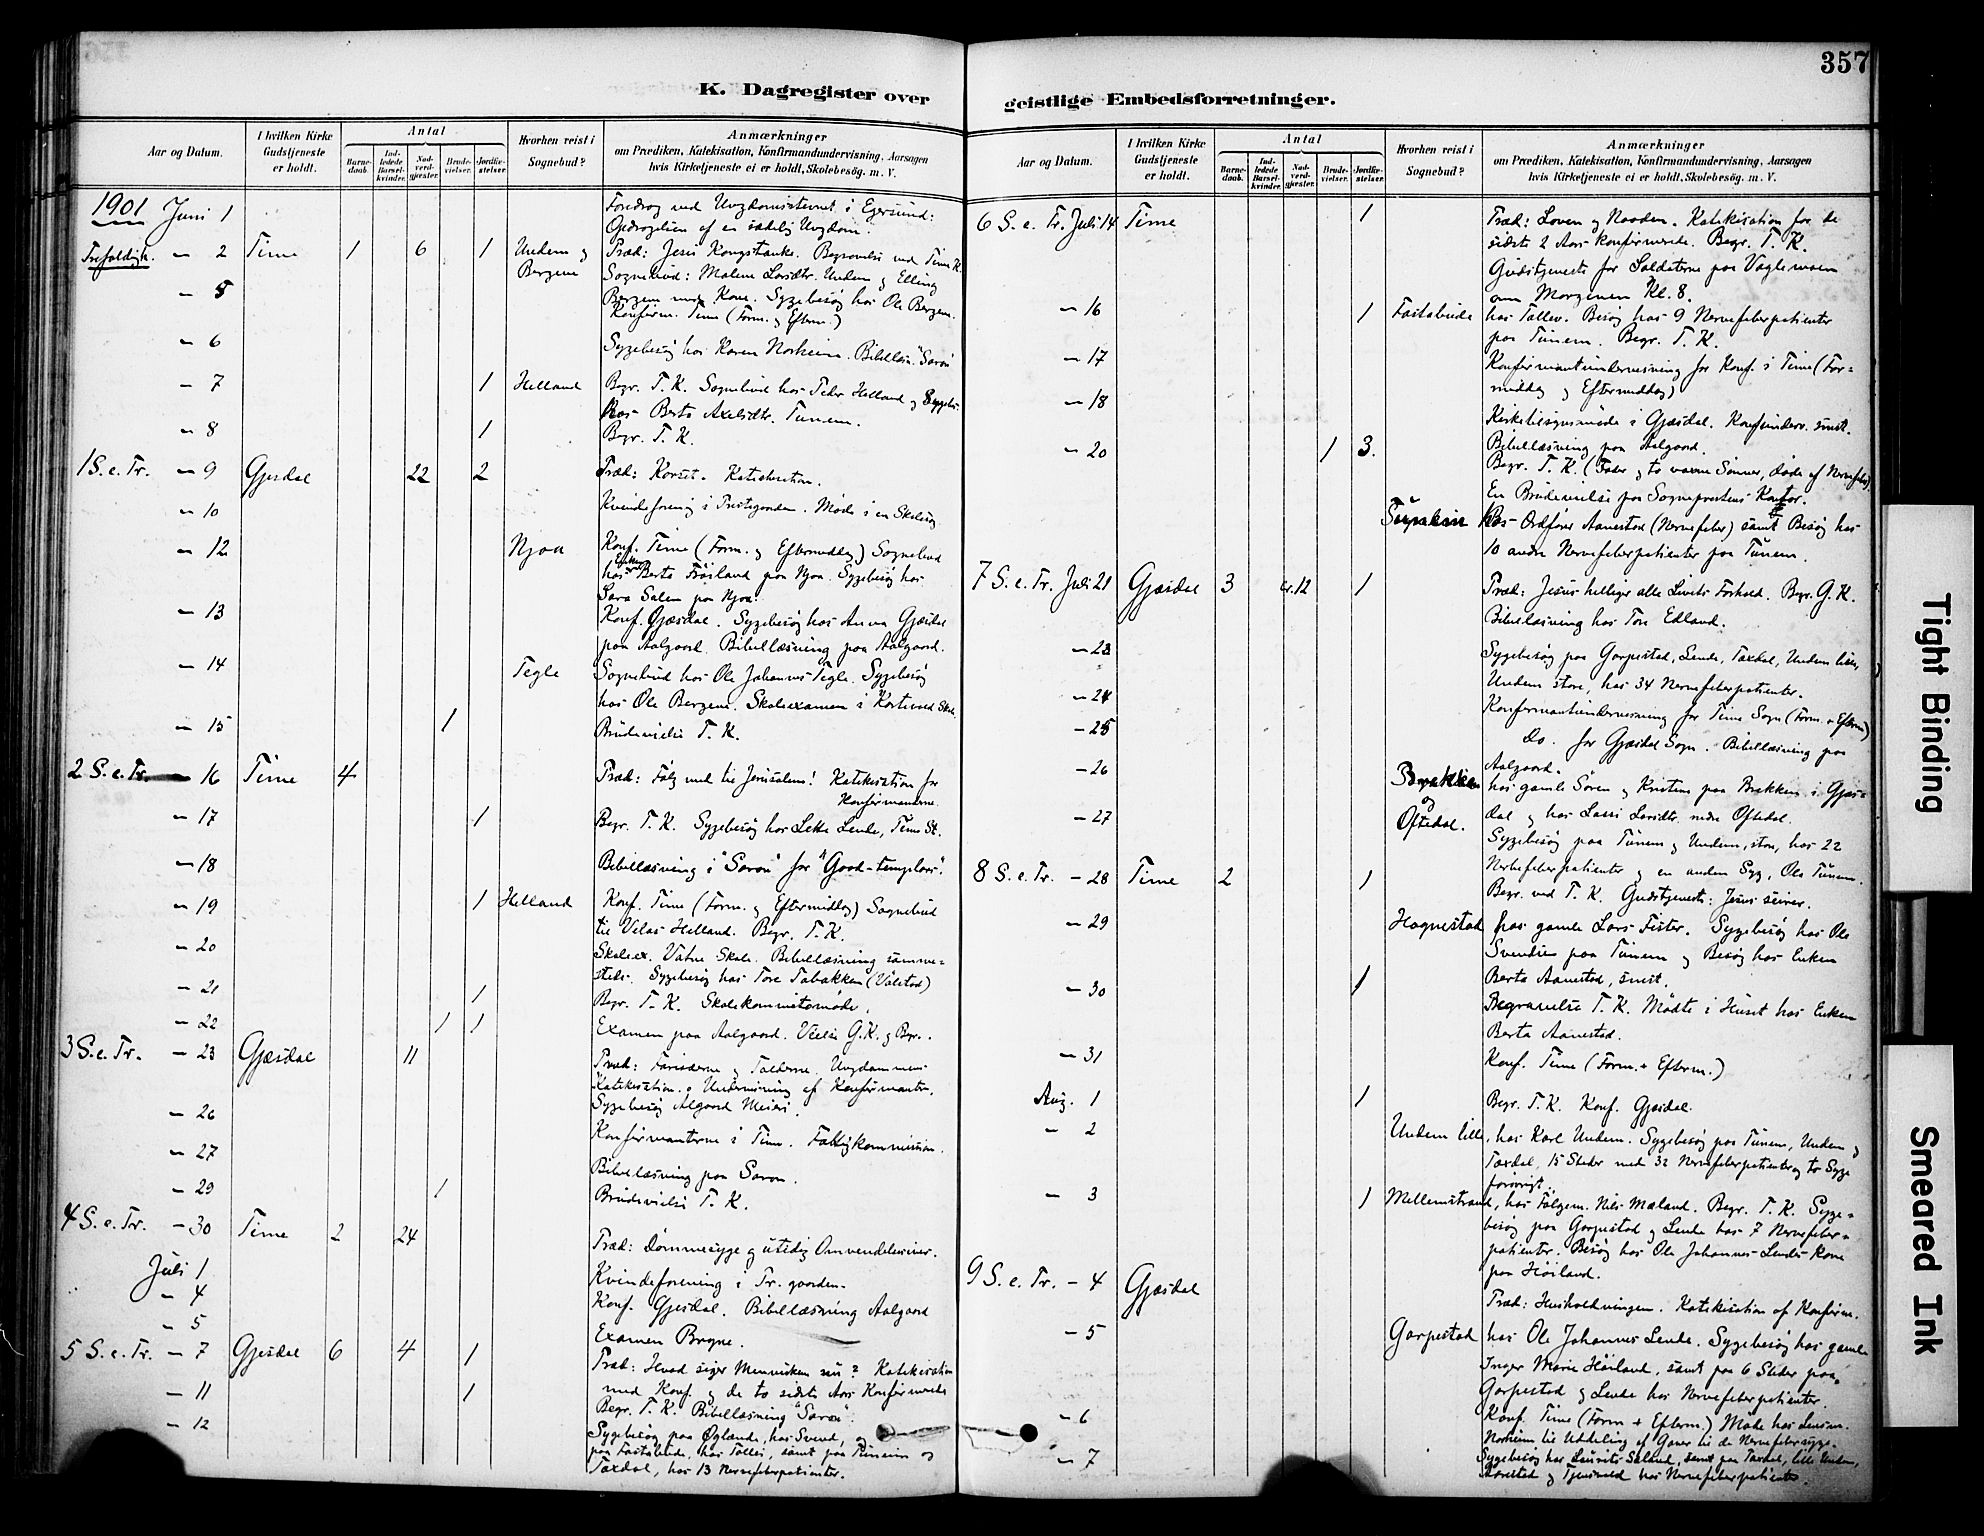 357
K. Dagregister over geistlige Embedsforretninger.
Aar og Datum.
I hvilken Kirke Gudstjeneste er holdt.
Antal
Barne-daab.
Ind-ledede Barsel-kvinder.
Nad-verd-gjester.
Brude-vielser.
Jordfæ-stelser.
Hvorhen reist i Sognebud?
Anmærkninger
om Prædiken, Katekisation, Konfirmandundervisning, Aarsagen
hvis Kirketjeneste ei er holdt, Skolebesög. m. V.
1901 Juni 1
Foredrag ved Ungdomsstevnet i Egersund:
Opdragelsen af en sædelig Ungdom.
Trefoldigh. — 2 Time 1 6 1 Undem og Bergene
Præd: Jesu Kongstanke. Begravelse ved Time K.
Sognebud: Malene Undem og Elling
Bergene med Kone. Sygebesög hos Ole Bergene.
— 5
Konfirm. Time (Form. og Efterm.)
— 6
Sygebesög hos Karen Norheim. Bibellæsn. "Saron"
— 7 1 Helland
Begr. T. K. Sognebud hos Peder Helland og Sygebes.
hos Berta Axelsdtr. Tunem.
— 8 1
Begr. T. K.
1 S. e. Tr. — 9 Gjesdal 22 2
Præd: Korset. Katekisation.
— 10
Kvindeforening i Præstegaarden. Möde i en Skolesag
— 12 Njaa
Konf. Time (Form. og Eftermiddag) Sognebud
hos Berta Fröiland paa Njaa. Sygebesög hos
Sara Salen paa Njaa.
— 13
Konf. Gjæsdal. Sygebesög hos Anna Gjæsdal
paa Aalgaard. Bibellæsning paa Aalgaard.
— 14 Tegle
Sognebud hos Ole Johannes Tegle. Sygebesög
hos Ole Bergene. Skoleexamen i Skole.
— 15 1
Brudevielse T. K.
2 S. e. Tr. — 16 Time 4
Præd: Følg med til Jerusalem! Katekisation for
Konfirmanderne.
— 17 1
Begr. T. K. Sygebesög hos Lende, Time St.
— 18
Bibellæsning i "Saron" for "Good-templars".
— 19 1 Helland
Konf. Time (Form. og Eftermiddag) Sognebud
til Helland. Begr. T. K.
— 20
Skoleex. Vatne Skole. Bibellæsning samme-
steds. Sygebesög hos Tore Tabakken (Vålstad)
— 21 1
Begr. T. K. Skolekommissionsmöde.
— 22 1 1
Examen paa Aalgaard. Vielse G. K. og Begr.
3 S. e. Tr. — 23 Gjæsdal 11
Præd: Farisæerne og Tolderne. Ungdommens
Katekisation. Undervisning af Konfirmanter.
Sygebesög Algaard
— 26
Konfirmanterne i Time. Fattigkommission.
— 27
Bibellæsning paa Saron.
— 29 1
Brudevielse T. K.
4 S. e. Tr. — 30 Time 2 24
Præd: Dømmesyge og utidig Omvendelsesiver.
Juli 1
Kvindeforening i Pr. gaarden.
— 4
Konf. Gjesdal. Bibellæsning Aalgaard
— 5
Examen Bryne.
5 S. e. Tr. — 7 Gjesdal 6 4 1
Præd: Hvad siger Mennesken nu? Katekisation
med Konf. og de to sidste Aars Konfirmerede
— 11 1
Begr. T. K. Bibellæsning "Saron".
— 12
Sygebesög paa Øglænde, hos Svend, og
paa Fastabude, hos Tollei, samt paa Tunem og
Taxdal, hos 13 Nervefeberpatienter.
Aar og Datum.
I hvilken Kirke Gudstjeneste er holdt.
Antal
Barne-daab.
Ind-ledede Barsel-kvinder.
Nad-verd-gjester.
Brude-vielser.
Jordfæ-stelser.
Hvorhen reist i Sognebud?
Anmærkninger
om Prædiken, Katekisation, Konfirmandundervisning, Aarsagen
hvis Kirketjeneste ei er holdt, Skolebesög. m. V.
6 S. e. Tr. Juli 14 Time 1
Præd: Loven og Naaden. Katekisation for de
sidste 2 Aars konfirmerede. Begr. T. K.
Gudstjeneste for Soldaterne paa Vaglemoen
om Morgenen Kl. 8.
— 16 1 Fastabude
hos Tallev. Besög hos 9 Nervefeberpatienter
paa Tunem. Begr. T. K.
— 17
Konfirmantundervisning for Konf. i Time (For-
middag og Eftermiddag)
— 18
Kirkebesynsmöde i Gjæsdal. Konfunderv. smst.
Bibellæsning paa Aalgaard.
— 20 1 3.
Begr. T. K. (Fader og to voxne Sönner, døde af Nervefeber)
En Brudevielse paa Sogneprestens Kontor.
hos Ordfører Aanestad (Nervefeber) samt Besög hos
10 andre Nervefeberpatienter paa Tunem.
7 S. e. Tr. Juli 21 Gjæsdal 3 12 1
Præd: Jesus helliger alle Livets Forhold. Begr. G. K.
Bibellæsning hos Tore Edland.
— 23
Sygebesög paa Garpestad, Lende, Taxdal, Undem lille,
Undem store, hos 34 Nervefeberpatienter.
— 24
Konfirmantundervisning for Time Sogn (Form. + Efterm)
— 25
Do. for Gjæsdal Sogn. Bibellæsning paa
Aalgaard.
— 26 Brekken og Oftedal.
hos gamle Sören og Kristine paa Brekken i Gjæs-
dal og hos Lassi nedre Oftedal.
— 27
Sygebesög paa Tunem og Undem, store, hos 22
Nervefeberpatienter og en anden Syg, Ole Tunem.
8 S. e. Tr. — 28 Time 2 1
Begr. ved T. K. Gudstjeneste: Jesus seirer.
— 29 Hognestad
hos gamle Lars Fister. Sygebesög hos Ole
Svendsen paa Tunem og Besög hos Enken
Berta Aanestad, smst.
— 30 1
Begravelse T. K. Mödte i Huset hos Enken
Berta Aanestad.
— 31
Konf. Time (Form. + Efterm.)
Aug. 1 1
Begr. T. K. Konf. Gjæsdal.
— 2 Undem lille,
hos Karl Undem. Sygebesög paa Tunem, Undem og
Taxdal, 15 Steder med 32 Nervefeberpatienter og to Syge
forövrigt.
— 3 1 Mellemstrand,
hos Følgem. Nils Mæland. Begr. T. K. Syge-
besög paa Garpestad og Lende hos 7 Nervefeber-
patienter. Besög hos Ole Johannes Lendes Kone
paa Höiland.
9 S. e. Tr. — 4 Gjæsdal
Præd: Husholdningen. Katekisation af Konfirm.
— 5 Garpestad
hos Ole Johannes Lende. Sygebesög hos gamle
Inger Marie Höiland, samt paa 6 Steder paa
Garpestad og Lende hos Nervefeberpatienter.
— 6
Konf. Time (Form + Efterm) Möde hos Lensm.
Norheim til Uddeling af Gaver til de Nervefebersyge.
— 7
Sygebesög hos Laurits Saland, samt paa Taxdal, lille Undem,
Aarestad og Tjensvold hos Nervefeberpatienter.
Tight Binding
Smeared Ink